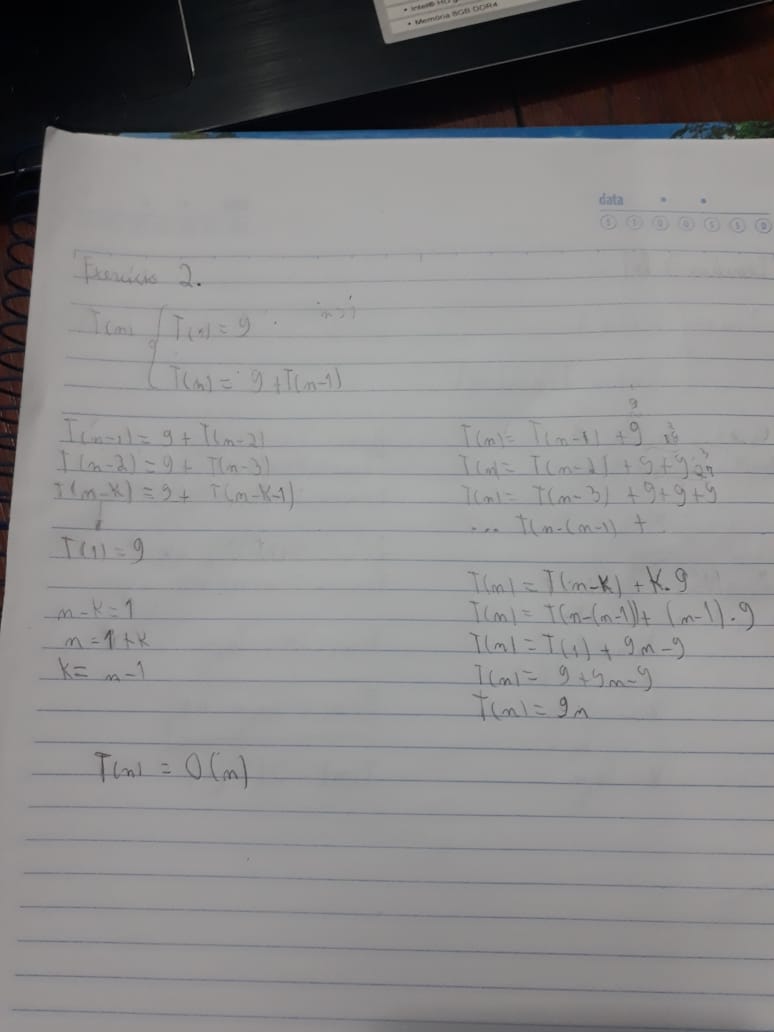 • Intel® HD
• Memória 8GB DDR4
data
Exercício 2.
T(n) { T(n) = 9
T(n) = 9 + T(n-1)
T(n-1) = 9 + T(n-2)
T(n-2) = 9 + T(n-3)
T(n-K) = 9 + T(n-K-1)
T(1) = 9
n-K = 1
n = 1 + K
K = n-1
T(n) = O(n)
9
T(n) = T(n-1) + 9
T(n) = T(n-2) + 9 + 9
T(n) = T(n-3) + 9 + 9 + 9
... T(n-(n-1) +
T(n) = T(n-K) + K.9
T(n) = T(n-(n-1)) + (n-1).9
T(n) = T(1) + 9n-9
T(n) = 9 + 9n-9
T(n) = 9n